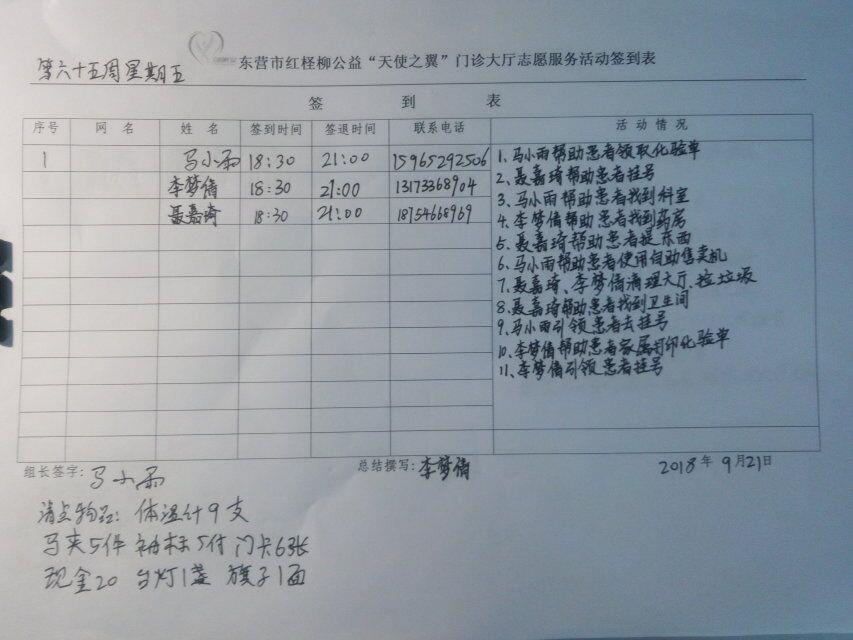 东营市红柽柳公益“天使之翼”门诊大厅志愿服务活动签到表
第六十五周星期五
签 到 表
序号 网 名 姓 名 签到时间 签退时间 联系电话 活 动 情 况
1 马小雨 18:30 21:00 15965292506
李梦倩 18:30 21:00 13173368904
聂嘉琦 18:30 21:00 18754668969
1、马小雨帮助患者领取化验单
2、聂嘉琦帮助患者挂号
3、马小雨帮助患者找到科室
4、李梦倩帮助患者找到药房
5、聂嘉琦帮助患者提东西
6、马小雨帮助患者使用自助售卖机
7、聂嘉琦、李梦倩清理大厅、捡垃圾
8、聂嘉琦帮助患者找到卫生间
9、马小雨引领患者去挂号
10、李梦倩帮助患者家属打印化验单
11、李梦倩引领患者挂号
组长签字:马小雨 总结撰写:李梦倩 2018年9月21日
清点物品:体温计9支
马夹5件 袖标5付 门卡6张
现金20 台灯1盏 旗子1面